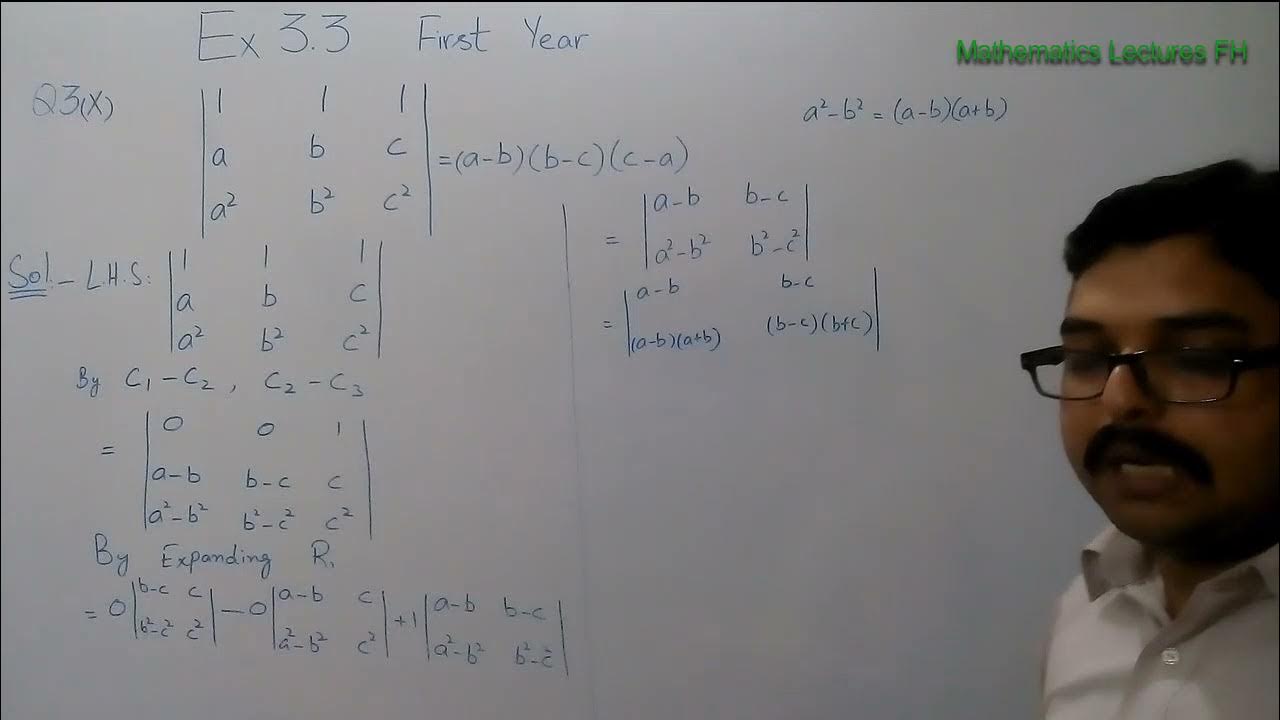 Ex 3.3 First Year
Mathematics Lectures FH
Q3(X)
|1 1 1|
|a b c| = (a-b)(b-c)(c-a)
|a² b² c²|
Sol:- L.H.S:
|1 1 1|
|a b c|
|a² b² c²|
By C₁-C₂, C₂-C₃
= |0 0 1|
|a-b b-c c|
|a²-b² b²-c² c²|
By Expanding R₁
= 0 |b-c c| - 0 |a-b c| + 1 |a-b b-c|
|b²-c² c²| |a²-b² c²| |a²-b² b²-c²|
a²-b² = (a-b)(a+b)
= |a-b b-c|
|a²-b² b²-c²|
= |a-b b-c|
|(a-b)(a+b) (b-c)(b+c)|